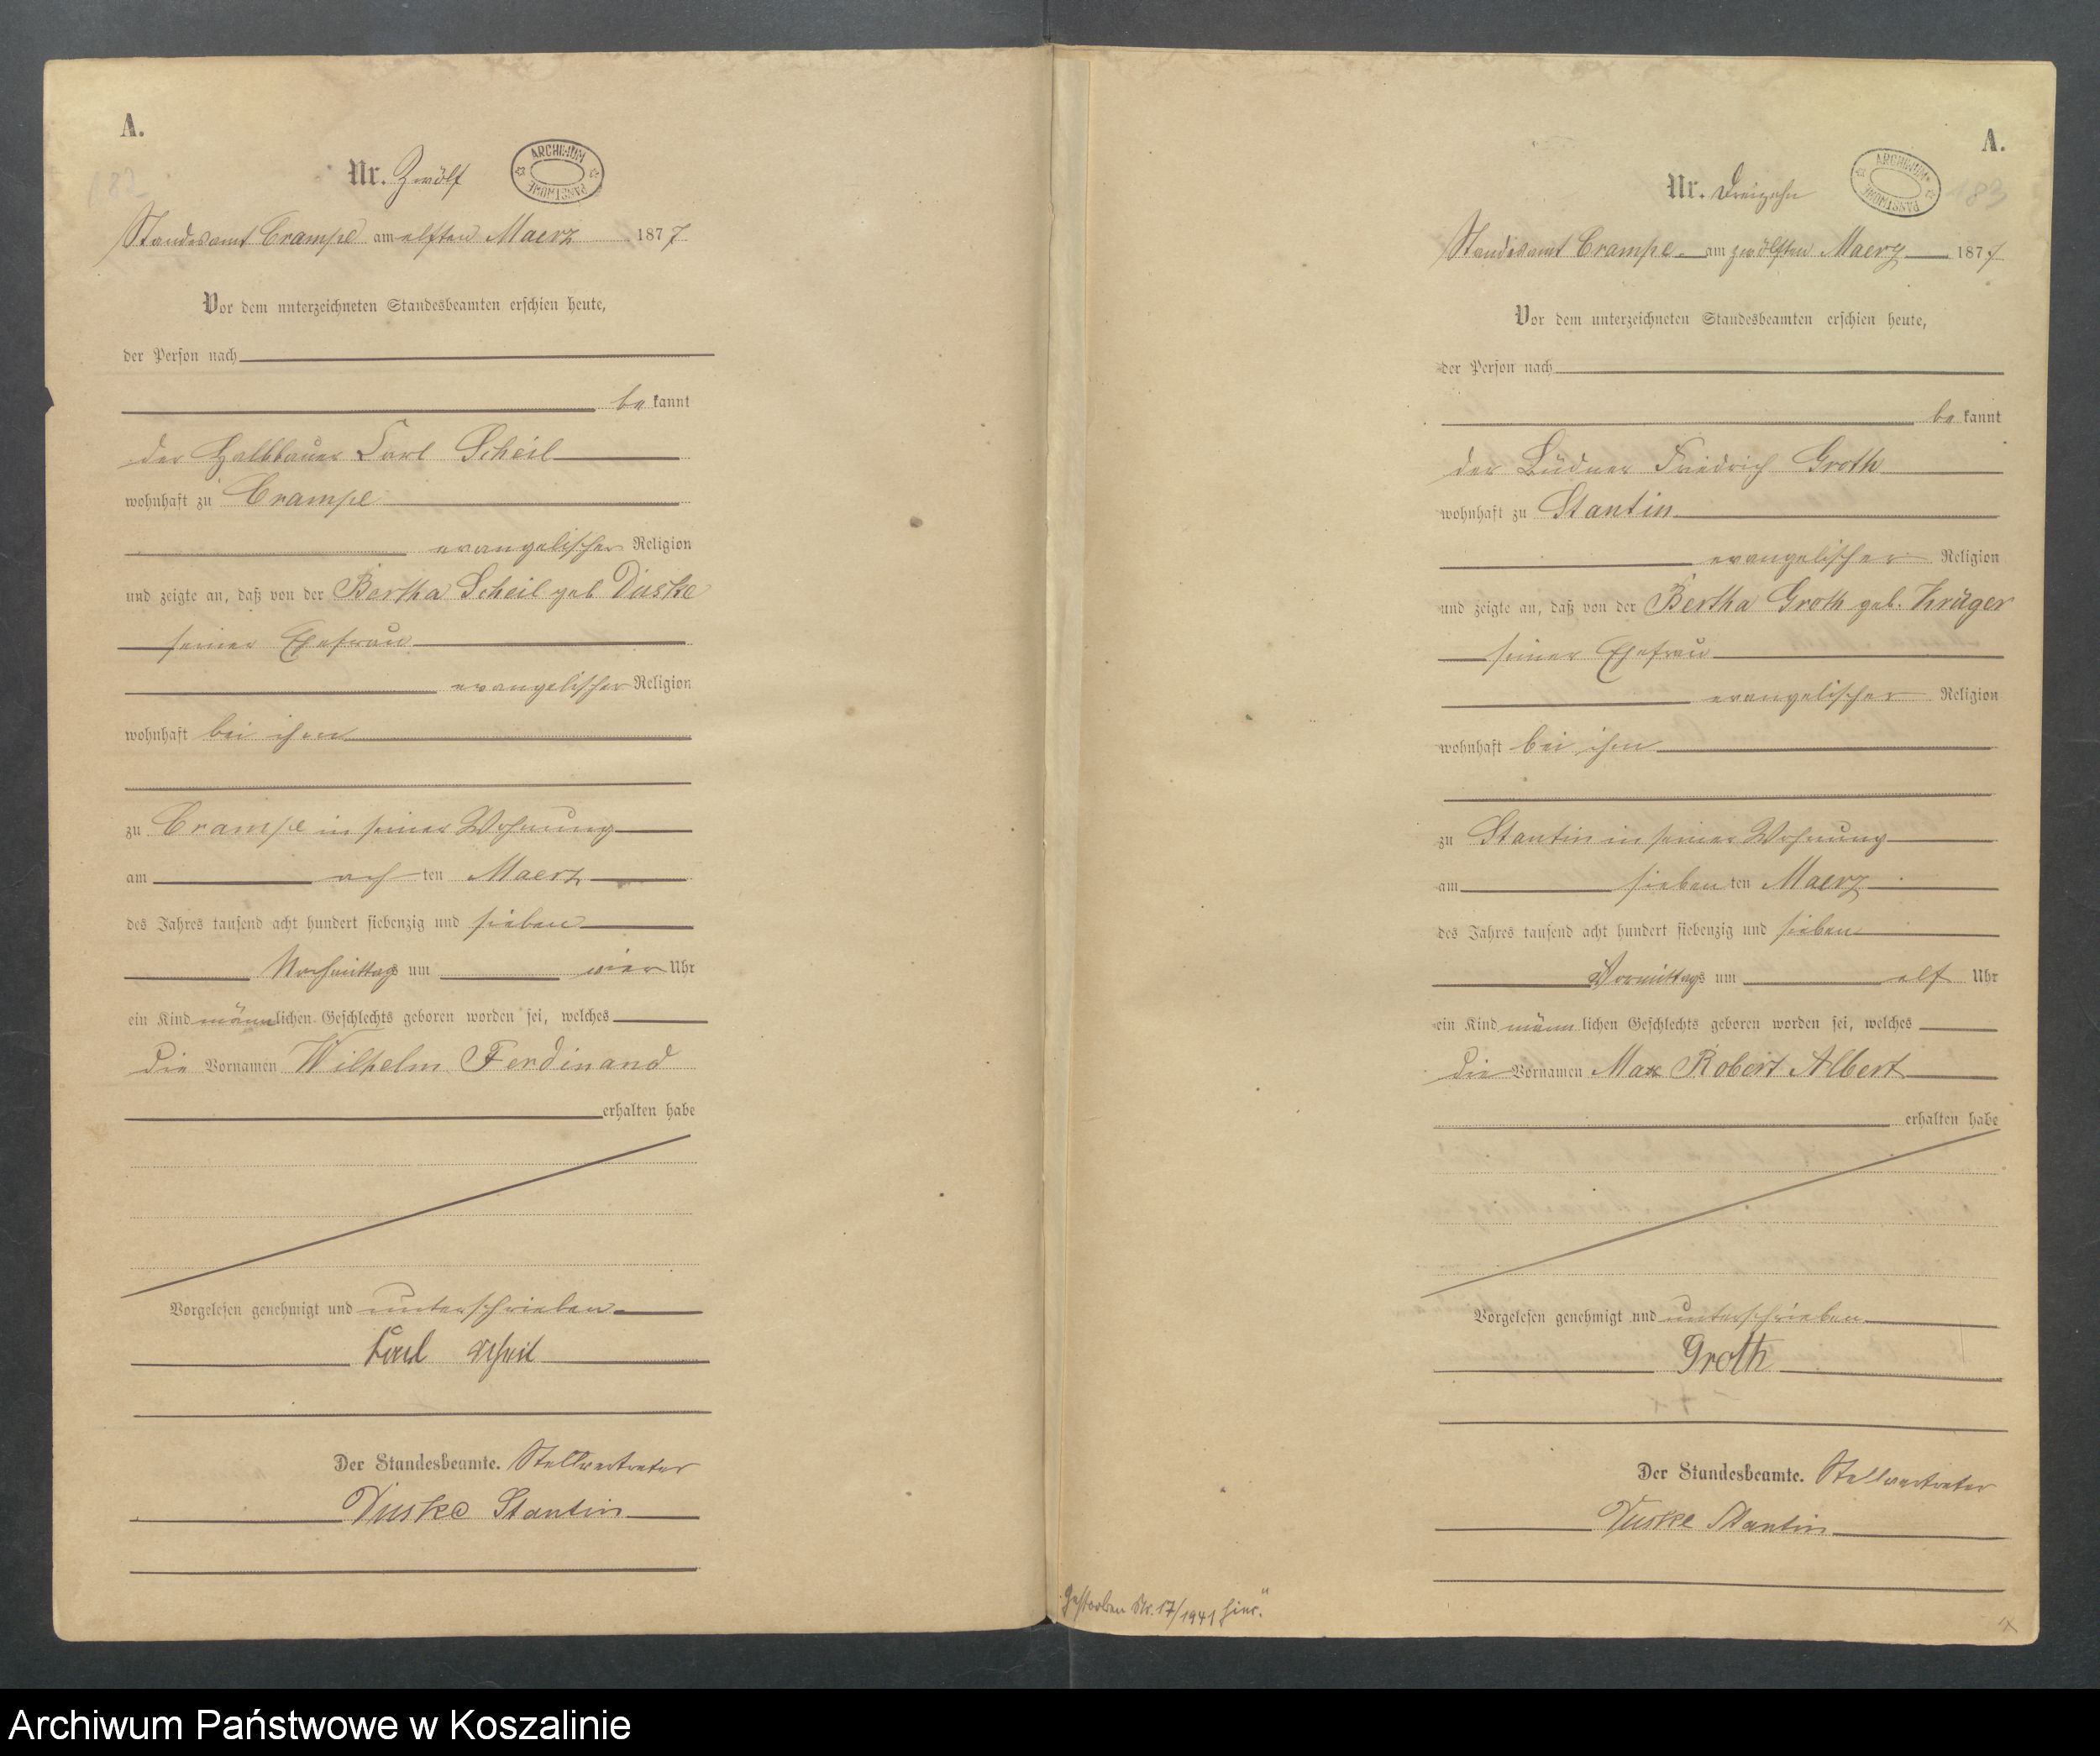 A.
182
Nr. Zwölf
ARCHIWUM PAŃSTWOWE
Standesamt Crampe am elften Maerz 1877
Vor dem unterzeichneten Standesbeamten erschien heute,
der Person nach
be kannt
der Halbbauer Carl Scheil
wohnhaft zu Crampe
evangelischer Religion
und zeigte an, daß von der Bertha Scheil geb Duske
seiner Ehefrau
evangelischer Religion
wohnhaft bei ihm
zu Crampe in seiner Wohnung
am ach ten Maerz
des Jahres tausend acht hundert siebenzig und sieben
Nachmittags um vier Uhr
ein Kind männlichen Geschlechts geboren worden sei, welches
die Vornamen Wilhelm Ferdinand
erhalten habe
Vorgelesen genehmigt und unterschrieben
Carl Scheil
Der Standesbeamte. Stellvertreter
Duske Stantin
A.
183
Nr. Dreizehn
ARCHIWUM PAŃSTWOWE
Standesamt Crampe am zwölften Maerz 1877
Vor dem unterzeichneten Standesbeamten erschien heute,
der Person nach
be kannt
der Büdner Friedrich Groth
wohnhaft zu Stantin
evangelischer Religion
und zeigte an, daß von der Bertha Groth geb. Krüger
seiner Ehefrau
evangelischer Religion
wohnhaft bei ihm
zu Stantin in seiner Wohnung
am sieben ten Maerz
des Jahres tausend acht hundert siebenzig und sieben
Vormittags um elf Uhr
ein Kind männ lichen Geschlechts geboren worden sei, welches
die Vornamen Max Robert Albert
erhalten habe
Vorgelesen genehmigt und unterschrieben
Groth
Der Standesbeamte. Stellvertreter
Duske Stantin
Gestorben Nr. 17/1941 hier."
Archiwum Państwowe w Koszalinie